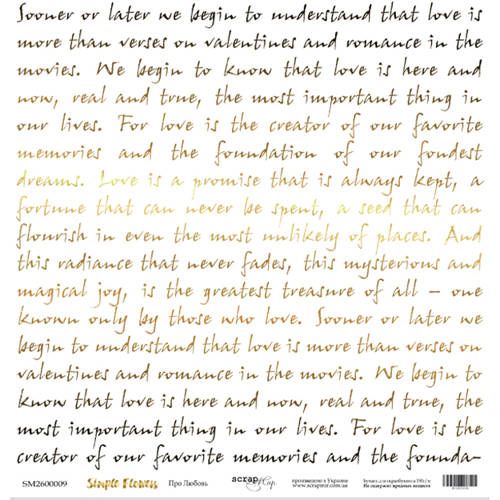 Sooner or later we begin to understand that love is
more than verses on valentines and romance in the
movies. We begin to know that love is here and
now, real and true, the most important thing in
our lives. For love is the creator of our favorite
memories and the foundation of our fondest
dreams. Love is a promise that is always kept, a
fortune that can never be spent, a seed that can
flourish in even the most unlikely of places. And
this radiance that never fades, this mysterious and
magical joy, is the greatest treasure of all – one
known only by those who love. Sooner or later we
begin to understand that love is more than verses on
valentines and romance in the movies. We begin to
know that love is here and now, real and true, the
most important thing in our lives. For love is the
creator of our favorite memories and the founda-
SM2600009 Simple Flowers Про Любовь scrapмир произведено в Украине
www.scrapmir.com.ua